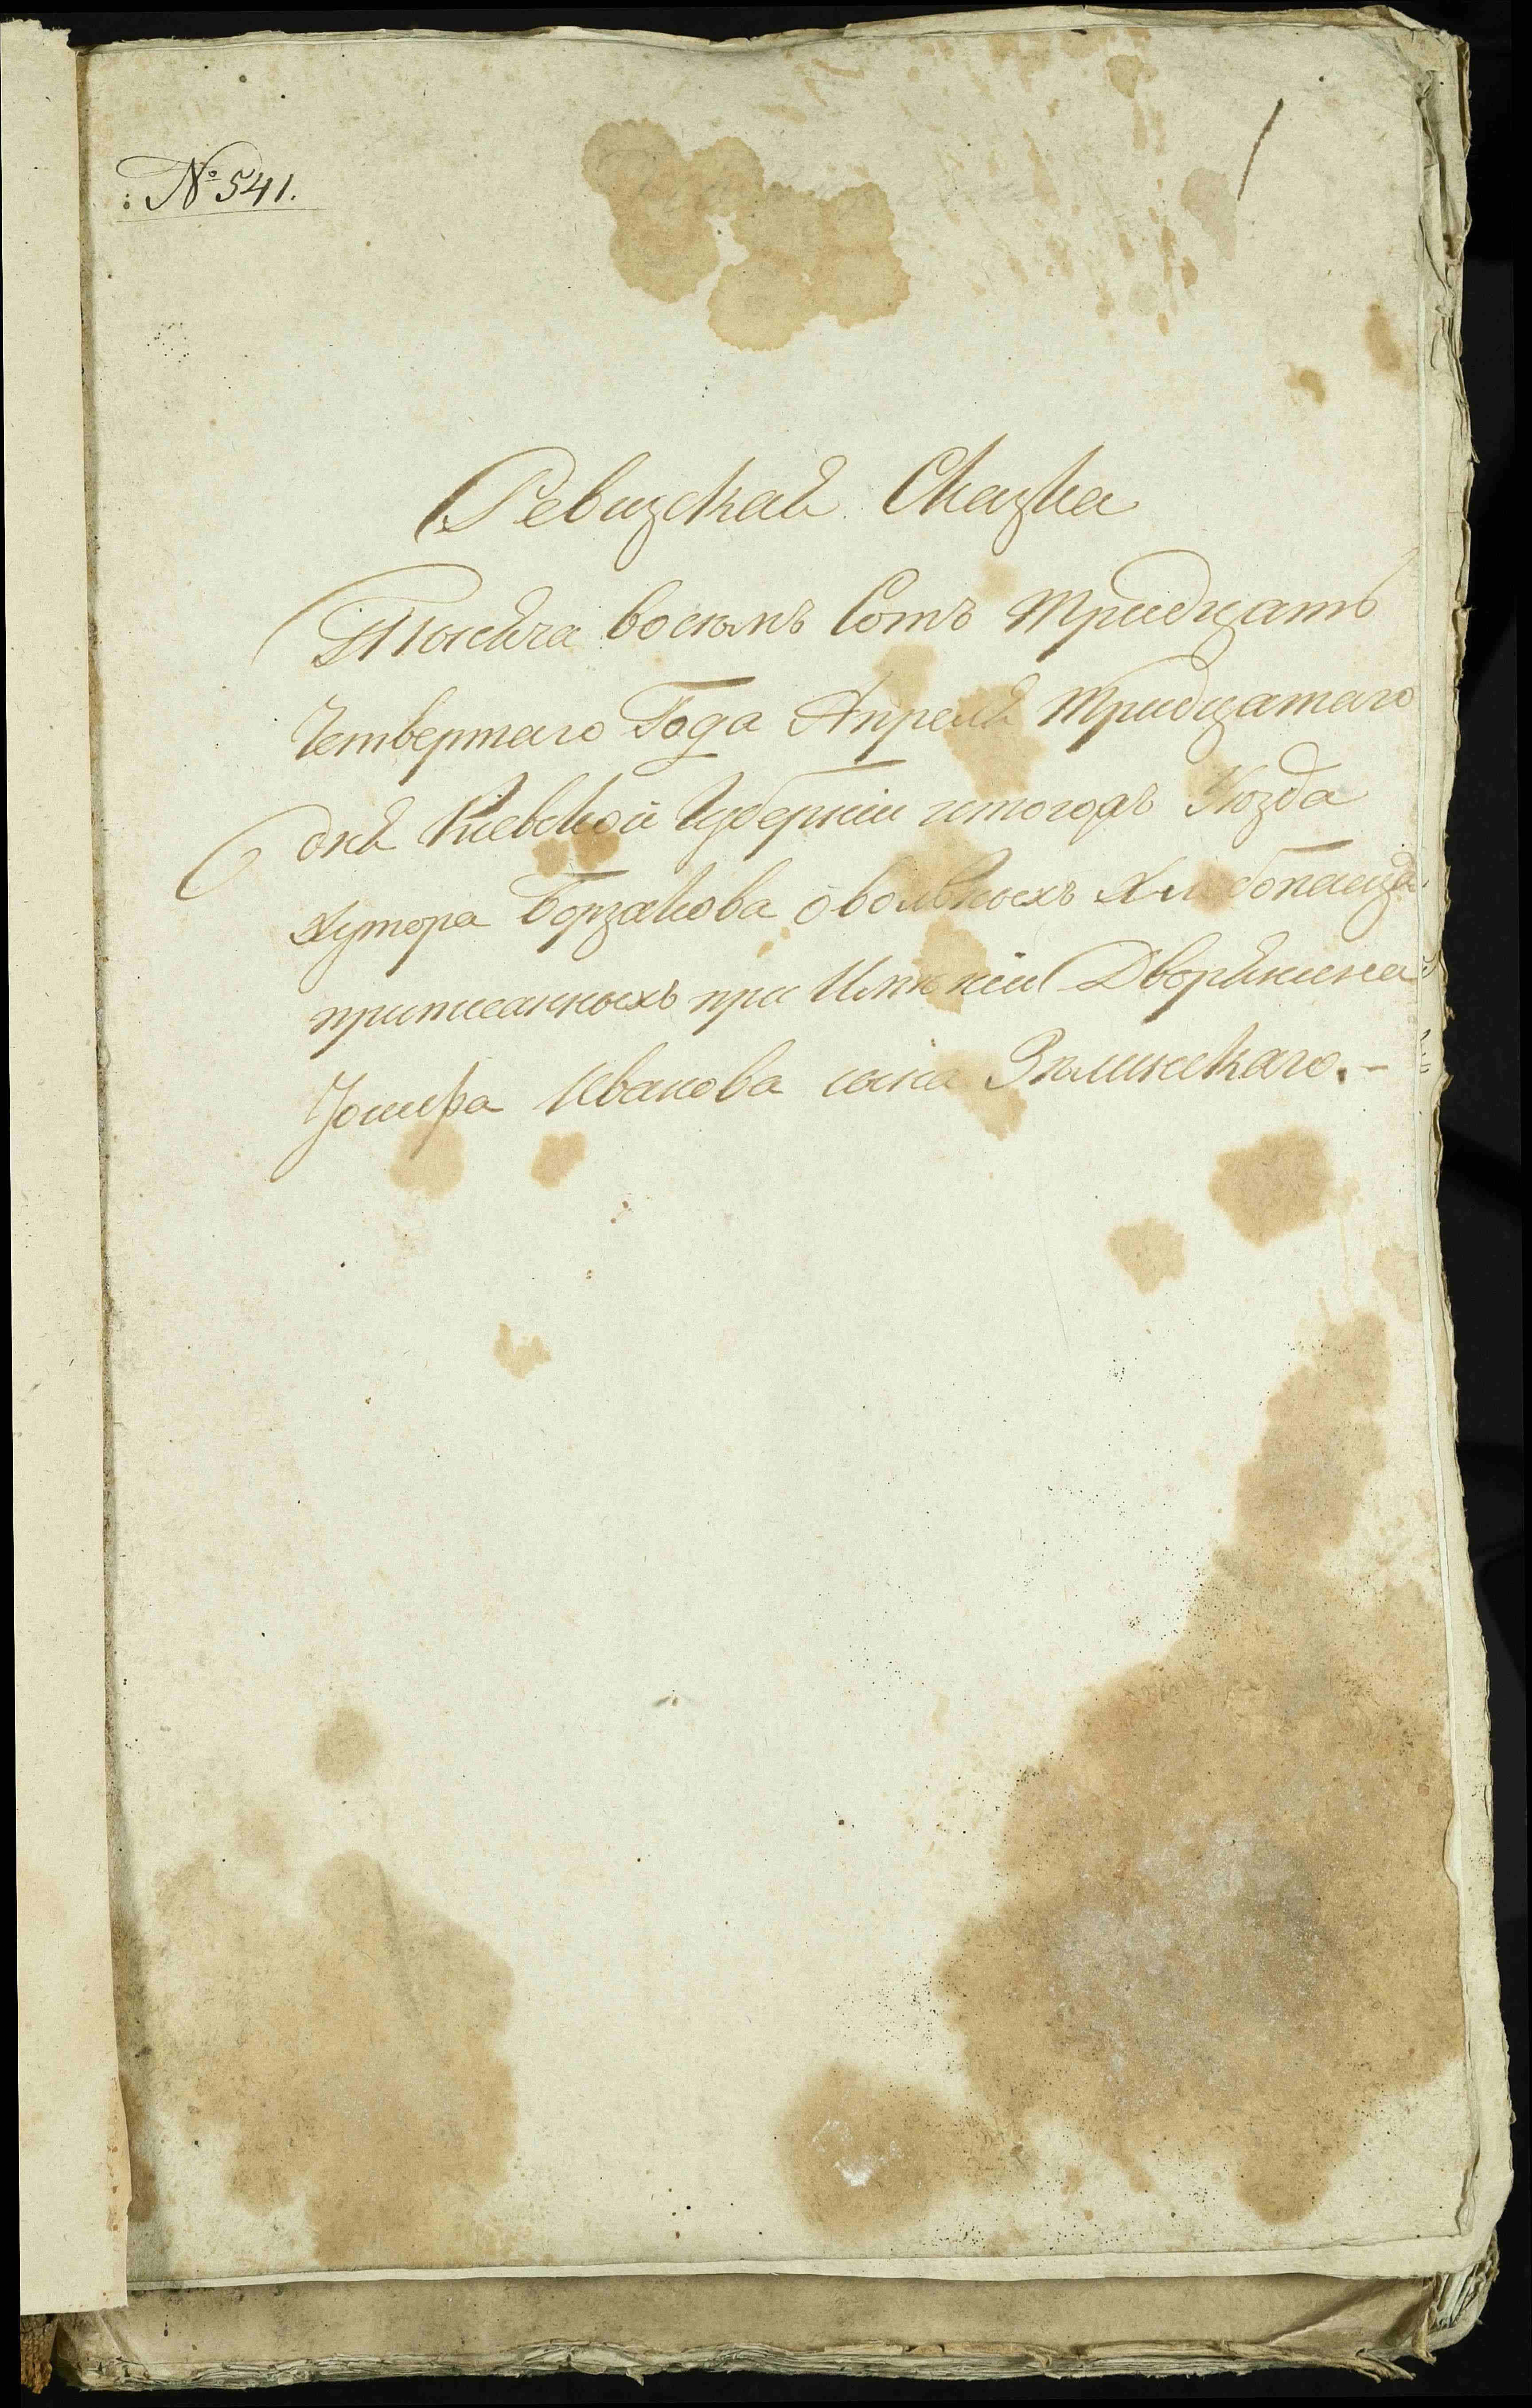 № 541.
Ревизская Сказка
Тысяча восемь Сотъ тридцать
Четвертаго Года Апреля тридцатаго
дня Киевской Губерніи итогожъ Уезда
Хутора Борзакова о вольныхъ Хлебопашца
приписанныхъ при Имѣніи Дворянина
Іосифа Иванова сына Зѣлинскаго.-